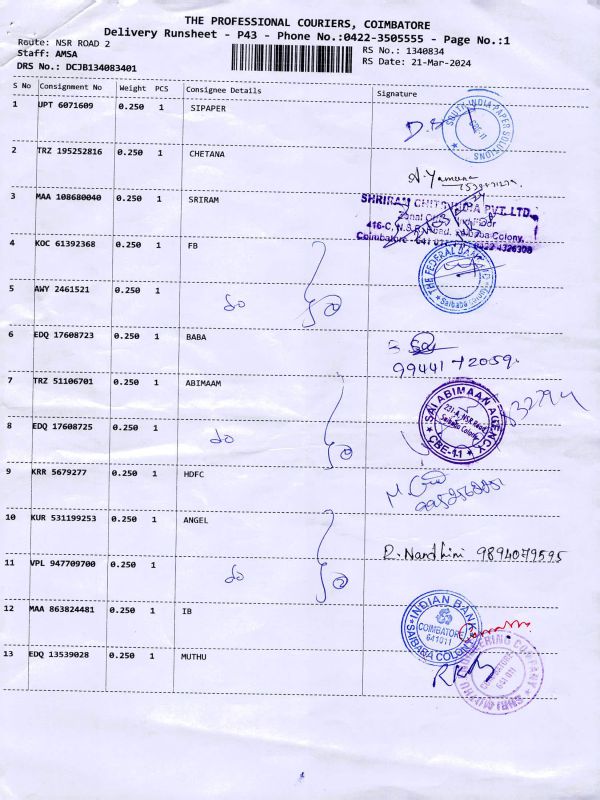 THE PROFESSIONAL COURIERS, COIMBATORE
Delivery Runsheet - P43 - Phone No.:0422-3505555 - Page No.:1
Route: NSR ROAD 2
RS No.: 1340834
Staff: AMSA
RS Date: 21-Mar-2024
DRS No.: DCJB134083401
S No Consignment No Weight PCS Consignee Details Signature
1 UPT 6071609 0.250 1 SIPAPER
SOUTH INDIA PAPER SOLUTIONS
CBE-11
2 TRZ 195252816 0.250 1 CHETANA
A. Yamuna
3 MAA 108680040 0.250 1 SRIRAM
SHRIRAM CHITS PVT. LTD.
416-C, N.S.R. Road, Saibaba Colony,
Coimbatore - 641 011 0422 4326308
4 KOC 61392368 0.250 1 FB
THE FEDERAL BANK LTD
Saibaba Colony
5 AWY 2461521 0.250 1
do
6 EDQ 17608723 0.250 1 BABA
99441 72059
7 TRZ 51106701 0.250 1 ABIMAAM
SAI ABIMAAN AGENCY
221-A, NSR Road,
Saibaba Colony,
CBE-11
8 EDQ 17608725 0.250 1
do
9 KRR 5679277 0.250 1 HDFC
10 KUR 531199253 0.250 1 ANGEL
R. Nandhini 9894079595
11 VPL 947709700 0.250 1
do
12 MAA 863824481 0.250 1 IB
INDIAN BANK
COIMBATORE
641011
SAIBABA COLONY
13 EDQ 13539028 0.250 1 MUTHU
SHRI MUTHU
COMPANY